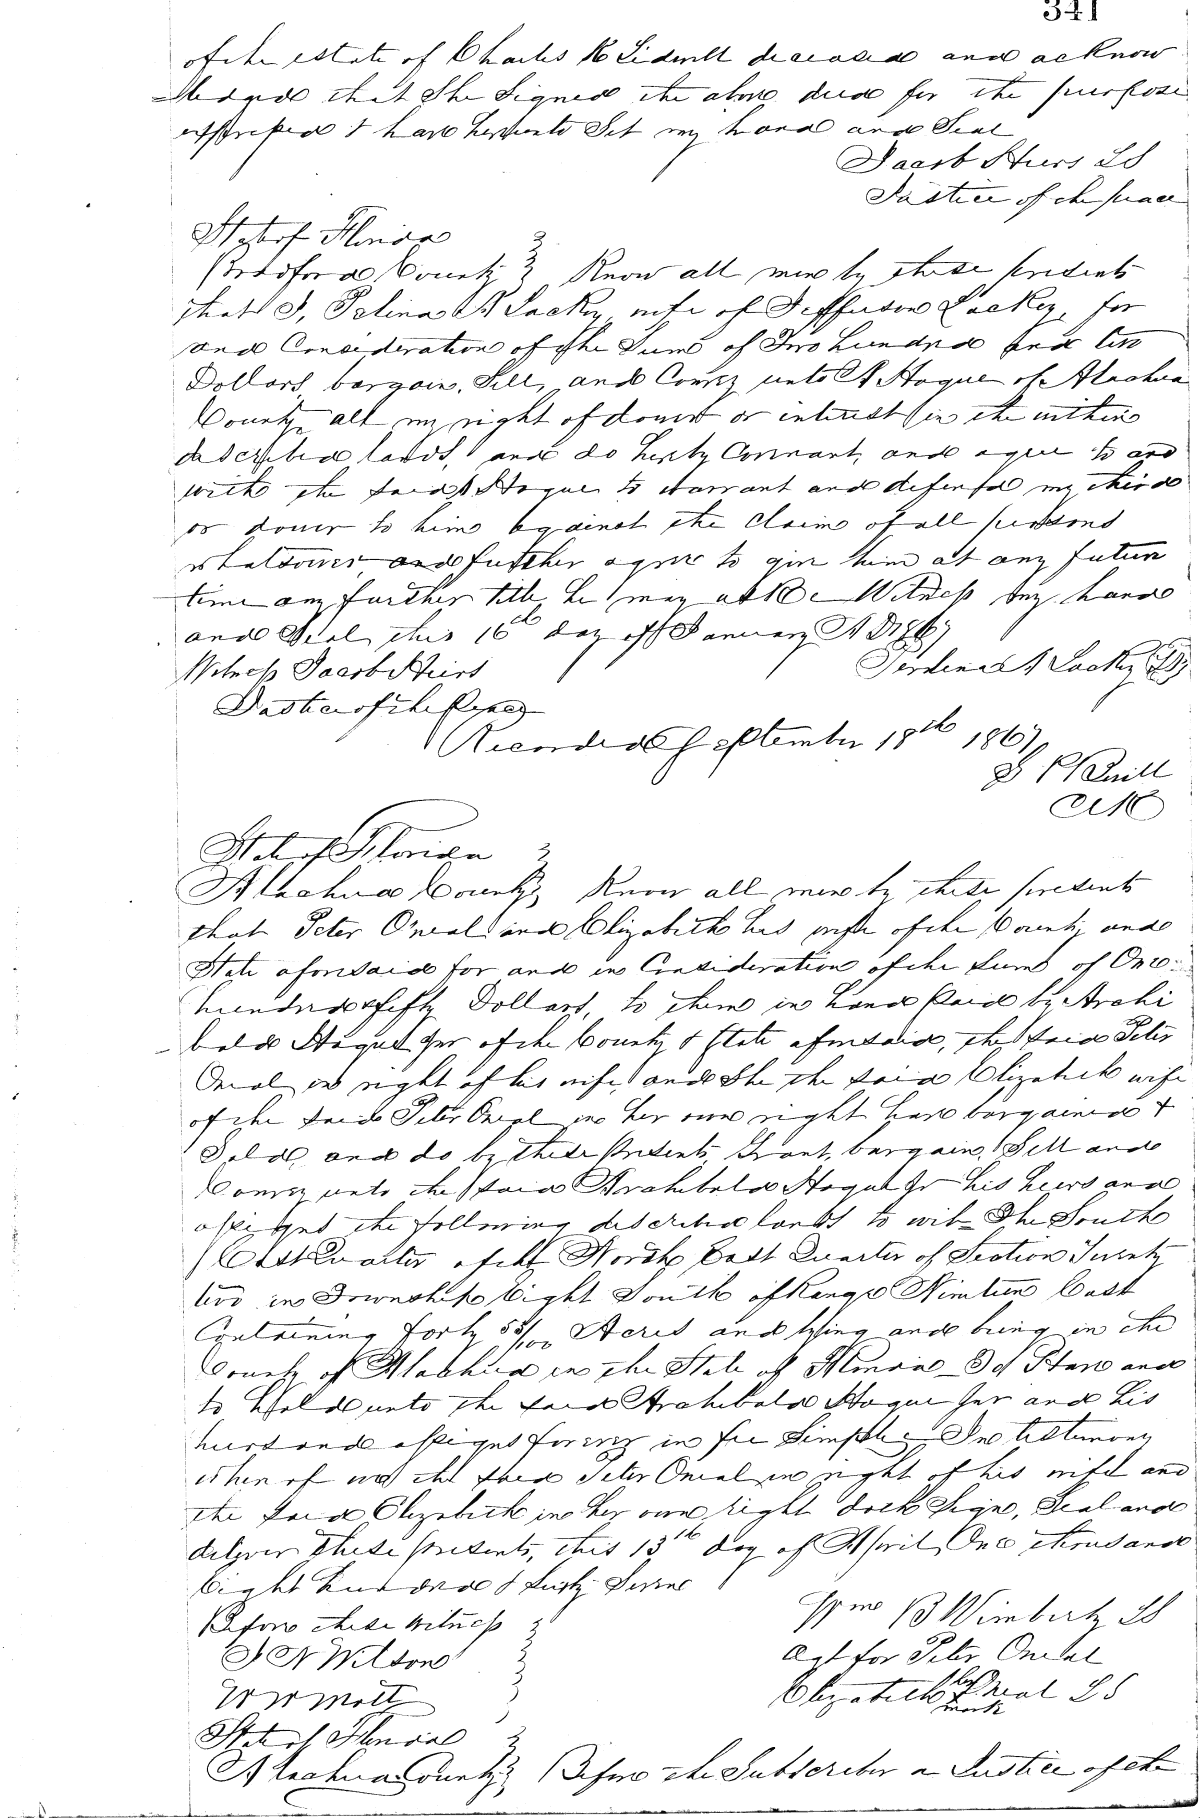 341
of the estate of Charles K Sidwell deceased and acknow
ledged that She Signed the above deed for the purpose
expressed & have hereunto Set my hand and Seal
Jacob Hiers LS
Justice of the peace
State of Florida
Bradford County Know all men by these presents
that I, A Lackey wife of Jefferson Lackey, for
and Consideration of the Sum of Two Hundred and ten
Dollars bargain, Sell, and Convey unto A Hague of Alachua
County all my right of dower or interest in the within
described lands, and do hereby Covenant, and agree to and
with the said A Hague to warrant and defend my third
or dower to him against the Claim of all persons
whatsoever and further agree to give him at any future
time any further title he may ask Witness my hand
and Seal this 16th day of January A D 1867
Witness Jacob Hiers
Justice of the Peace
A Lackey LS
Recorded September 18th 1867
Clk
State of Florida
Alachua County Know all men by these presents
that Peter O'neal and Elizabeth his wife of the County and
State aforesaid for and in Consideration of the Sum of One
hundred & fifty Dollars, to them in hand Paid by Archi
bald Hague Jnr of the County & State aforesaid, the said Peter
Oneal in right of his wife, and She the said Elizabeth wife
of the said Peter Oneal in her own right have bargained &
Sold, and do by these Presents, Grant, bargain, Sell and
Convey unto the said Archibald Hague Jr his heirs and
assigns the following described lands to wit The South
East Quarter of the North East Quarter of Section Twenty
two in Township Eight South of Range Nineteen East
Containing Forty 55/100 Acres and lying and being in the
County of Alachua in the State of Florida To Have and
to Hold unto the said Archibald Hague Jnr and his
heirs and assigns forever in fee Simple In testimony
where of we the said Peter Oneal in right of his wife and
the said Elizabeth in her own right doth Sign, Seal and
deliver These presents, this 13th day of April, One thousand
Eight hundred & Sixty Seven
Before these witness
J N Wilson
W W Mott
Wm B Wimberly LS
Agt for Peter Oneal
Elizabeth her Oneal LS
mark
State of Florida
Alachua County Before the Subscriber a Justice of the